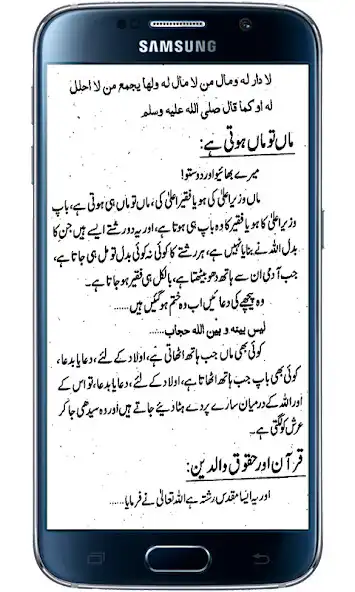 SAMSUNG
لا دار له ومال من لا مال له ولها يجمع من لا احلل
له او كما قال صلى الله عليه وسلم
ماں تو ماں ہوتی ہے:
میرے بھائیو اور دوستو!
ماں وزیراعلیٰ کی ہو یا فقیر اعلیٰ کی، ماں تو ماں ہی ہوتی ہے، باپ
وزیراعلیٰ کا ہو یا فقیر کا وہ باپ ہی ہوتا ہے، اور یہ دو رشتے ایسے ہیں جن کا
بدل اللہ نے بنایا نہیں ہے، ہر رشتے کا کوئی نہ کوئی بدل تو مل ہی جاتا ہے،
جب آدمی ان سے ہاتھ دھو بیٹھتا ہے، بالکل ہی فقیر ہو جاتا ہے۔
وہ پیچھے کی دعائیں اب وہ ختم ہو گئیں ہیں......
ليس بينه و بين الله حجاب
کوئی بھی ماں جب ہاتھ اٹھاتی ہے، اولاد کے لئے، دعا یا بددعا،
کوئی بھی باپ جب ہاتھ اٹھاتا ہے، اولاد کے لئے، دعا یا بددعا، تو اس کے
اور اللہ کے درمیان سارے پردے ہٹا دیئے جاتے ہیں اور وہ سیدھی جا کر
عرش کو لگتی ہے۔
قرآن اور حقوق والدین:
اور یہ ایسا مقدس رشتہ ہے اللہ تعالیٰ نے فرمایا......